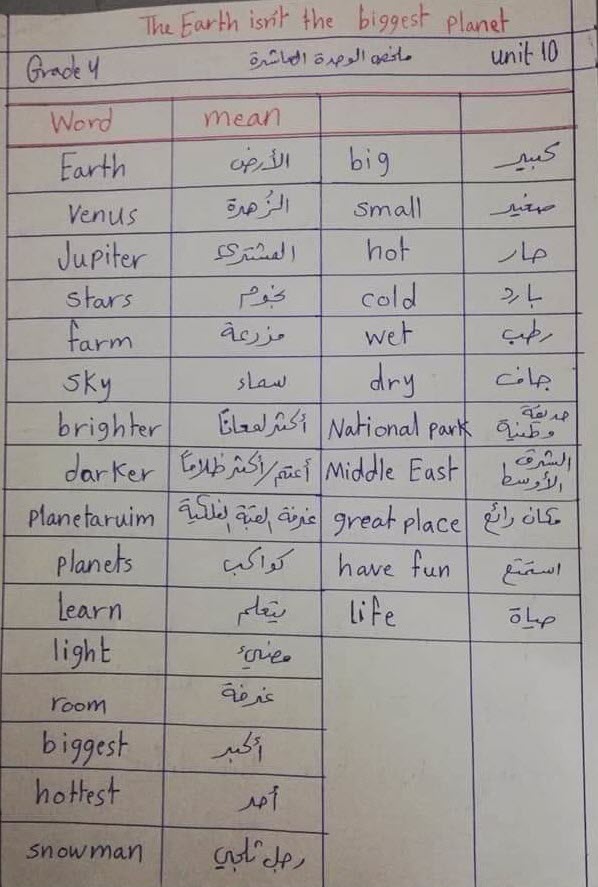 The Earth isn't the biggest planet
Grade 4 ملخص الوحدة العاشرة unit 10
Word mean
Earth الأرض big كبير
Venus الزُهرة small صغير
Jupiter المشترى hot حار
stars نجوم cold بارد
farm مزرعة wet رطب
sky سماء dry جاف
brighter أكثر لمعاناً National park حديقة وطنية
darker أعتم/أكثر ظلاماً Middle East الشرق الأوسط
Planetaruim غرفة القبة الفلكية great place مكان رائع
planets كواكب have fun استمتع
Learn يتعلم life حياة
light مضيء
room غرفة
biggest أكبر
hottest أحر
snowman رجل ثلجي